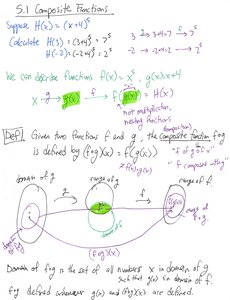 5.1 Composite Functions
Suppose H(x) = (x+4)⁵
Calculate H(3) = (3+4)⁵ = 7⁵
3 → 3+4=7 → 7⁵
H(-2) = (-2+4)⁵ = 2⁵
-2 → -2+4=2 → 2⁵
We can describe functions f(x) = x⁵, g(x) = x+4
x g→ g(x) f→ f(g(x)) = H(x)
not multiplication,
nesting functions
Def| Given two functions f and g, the composite function f∘g
(composition)
is defined by (f∘g)(x) = f(g(x))
"f of g of x"
"f composed with g"
domain of g
g
range of g
f
range of f
x
g(x)
domain of f
range of
f∘g
(f∘g)(x)
Domain of f∘g is the set of all numbers x in domain of g
such that g(x) is in domain of f.
f∘g defined whenever g(x) and (f∘g)(x) are defined.